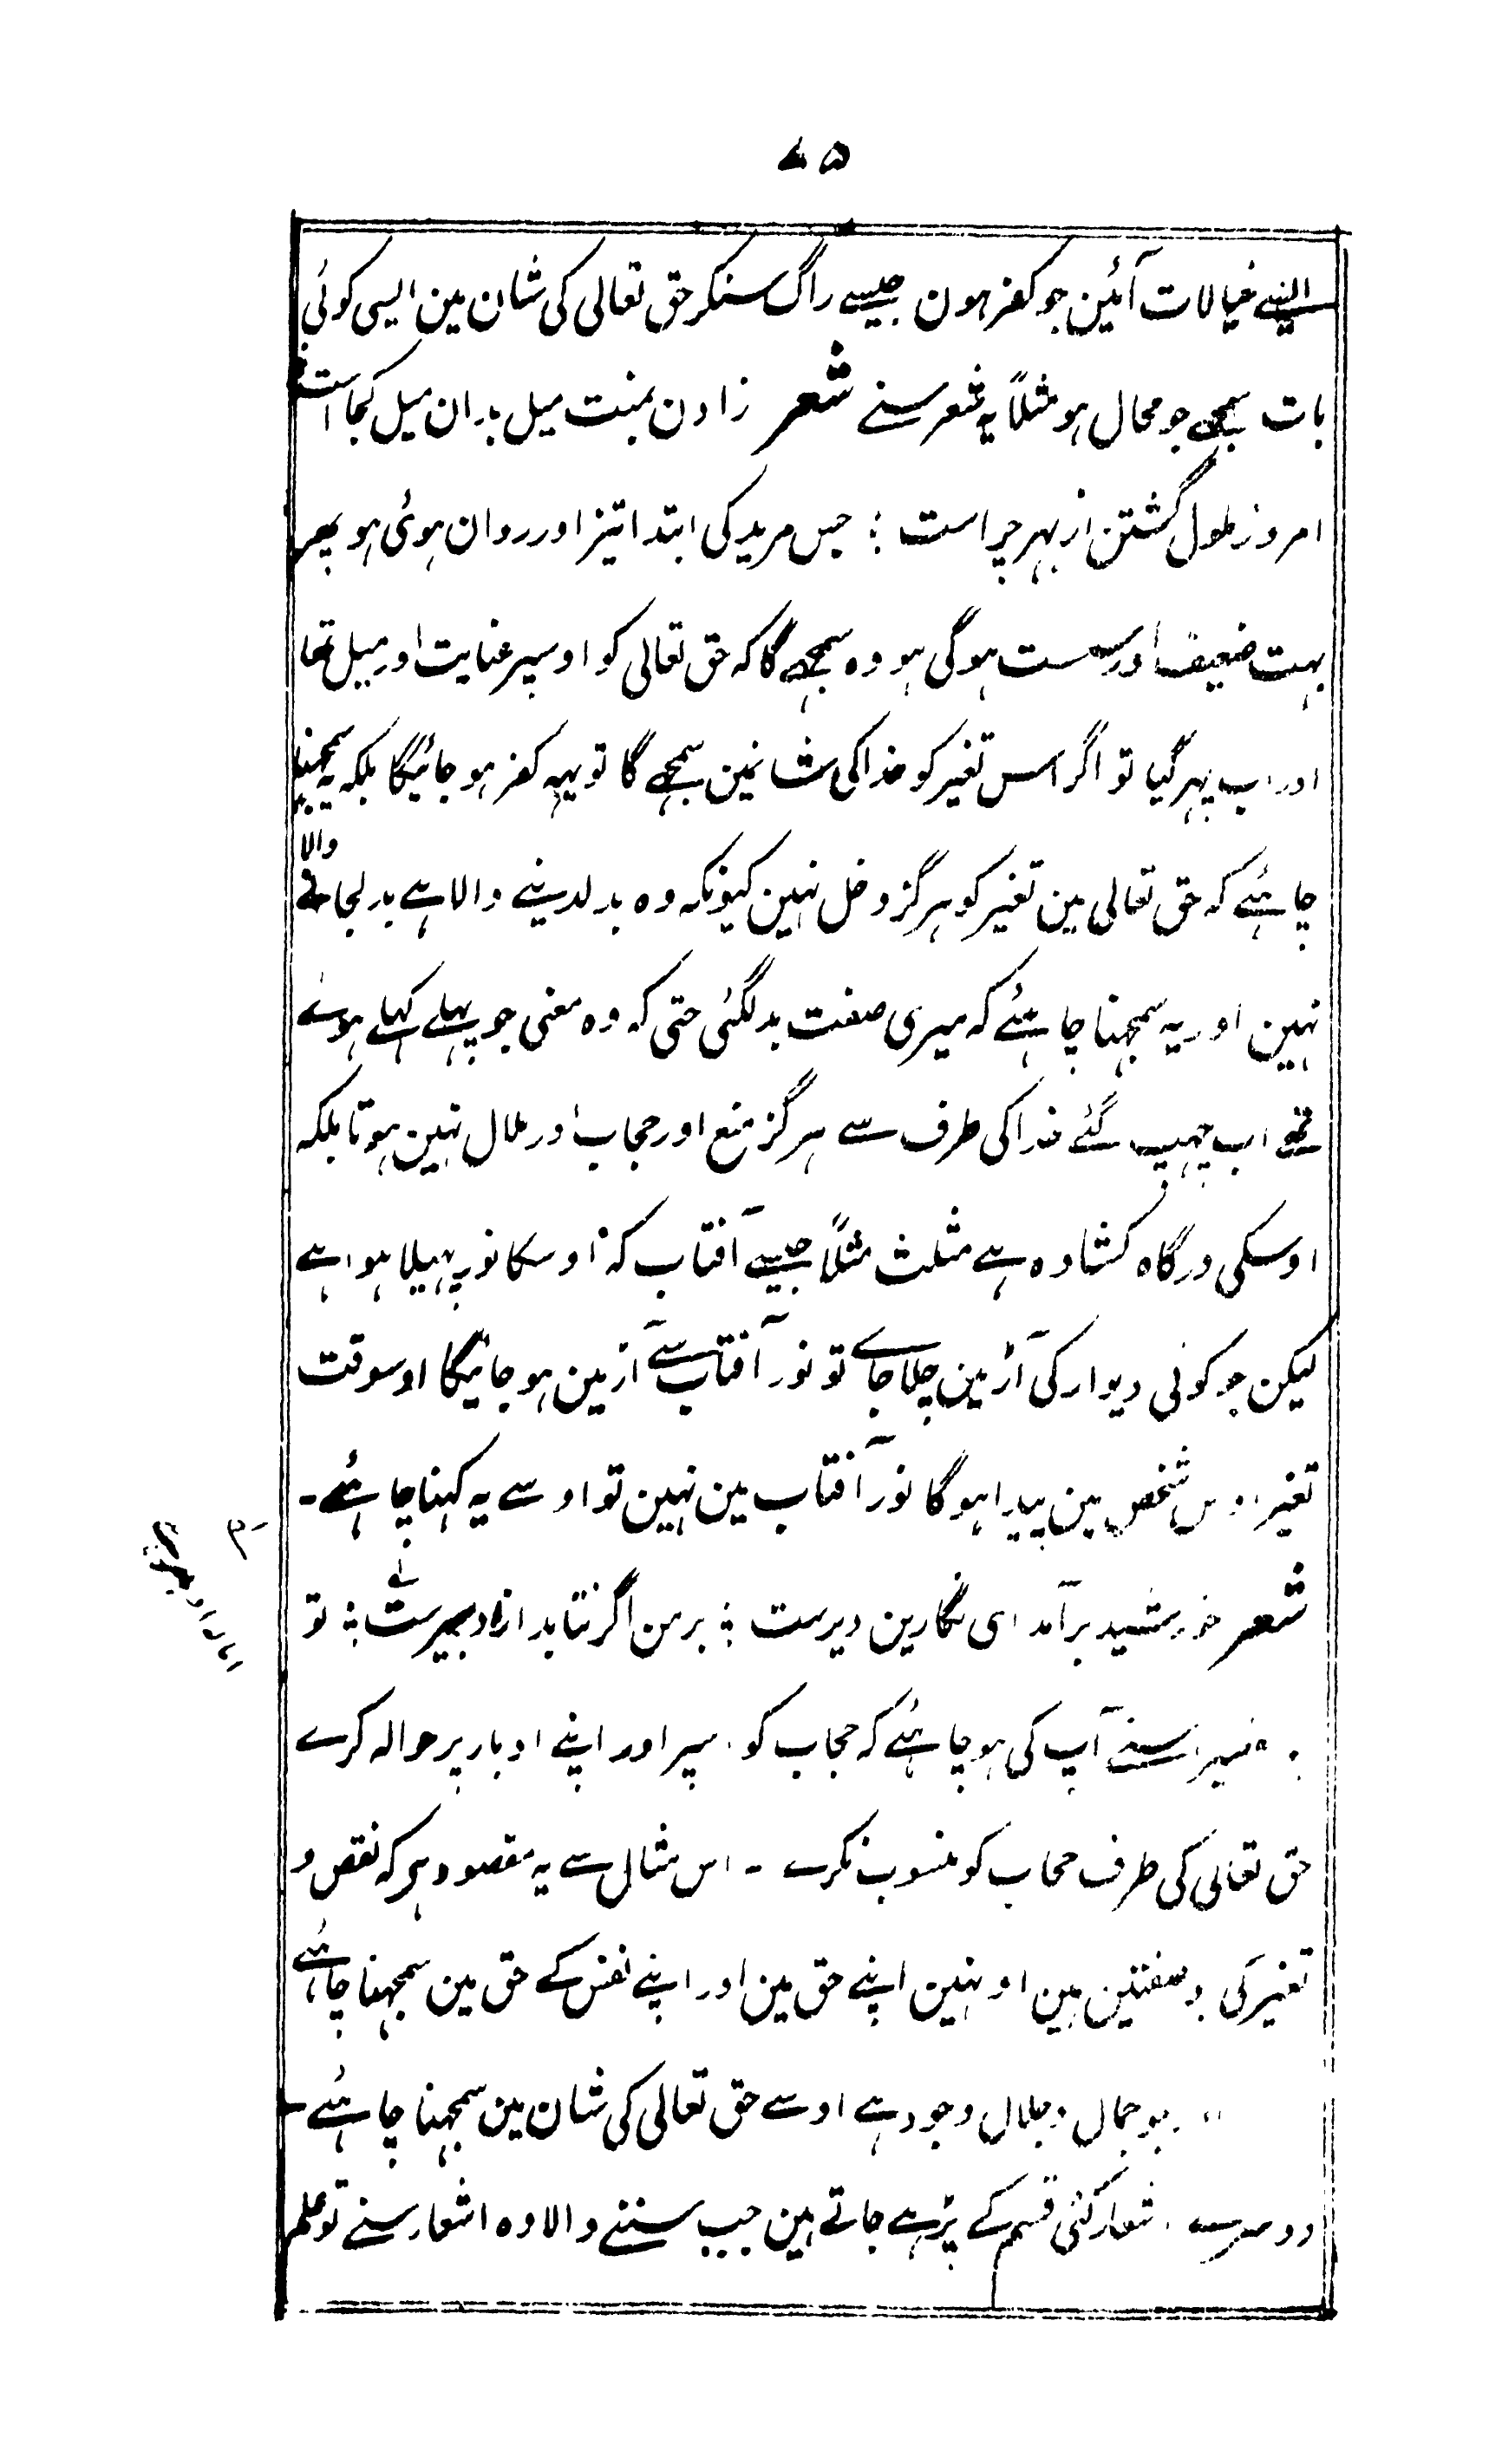 ۷۵
ایسے خیالات آئین جو کفر ہون جیسے راگ سنکر حق تعالی کی شان مین ایسی کوئی
بات سمجھے جو محال ہو مثلاً یہ شعر سنے شعر زاول بمنت میل بدان میل کجاست
امروز ملول گشتن از بہر چراست ؛ جس مرید کی ابتدا تیز اور روان ہوئی ہو پھر
بہت ضعیف اور سست ہوگی ہو وہ سمجھے گا کہ حق تعالی کو اوسپر عنایت اور میل تھا
اور اب پہر گیا تو اگر اس تغیر کو خدا کی شانمین سمجھے گا تو یہہ کفر ہو جائیگا بلکہ یہ سمجہنا
چاہئے کہ حق تعالی مین تغیر کو ہرگز دخل نہین کیونکہ وہ بدلدینے والا ہے بدلجانے والا
نہین اور یہ سمجہنا چاہئے کہ میری صفت بدلگئی حتی کہ وہ معنی جو پہلے کہلے ہوئے
تھے اب چہپ گئے خدا کی طرف سے ہرگز منع اور حجاب اور ملال نہین ہوتا بلکہ
اوسکی درگاہ کشادہ ہے مثلث مثلاً جیسے آفتاب کہ اوسکا نور پہیلا ہوا ہے
لیکن جو کوئی دیوار کی آڑ مین چلا جاے تو نور آفتاب سے آڑ مین ہو جائیگا اوسوقت
تغیر اوس شخص مین پیدا ہوگا نور آفتاب مین نہین تو اوسے یہ کہنا چاہئے ۔
شعر خورشید برآمد ای نگارین دیرست ؛ برمن اگر نتابد از ادبیرست ؛ تو
آپ کی ہو چاہئے کہ حجاب کو اپنے اوپر اور اپنے ادبار پر حوالہ کرے
حق تعالی کی طرف حجاب کو منسوب نکرے ۔ اس مثال سے یہ مقصود ہے کہ نقص و
تغیر کی جو صفتین ہین اونہین اپنے حق مین اور اپنے نفس کے حق مین سمجہنا چاہئے
جو جمال و جلال وجود ہے اوسے حق تعالی کی شان مین سمجہنا چاہئے ۔
دوسرے اشعار کئی قسم کے پڑہے جاتے ہین جب سننے والا وہ اشعار سنے تو علم